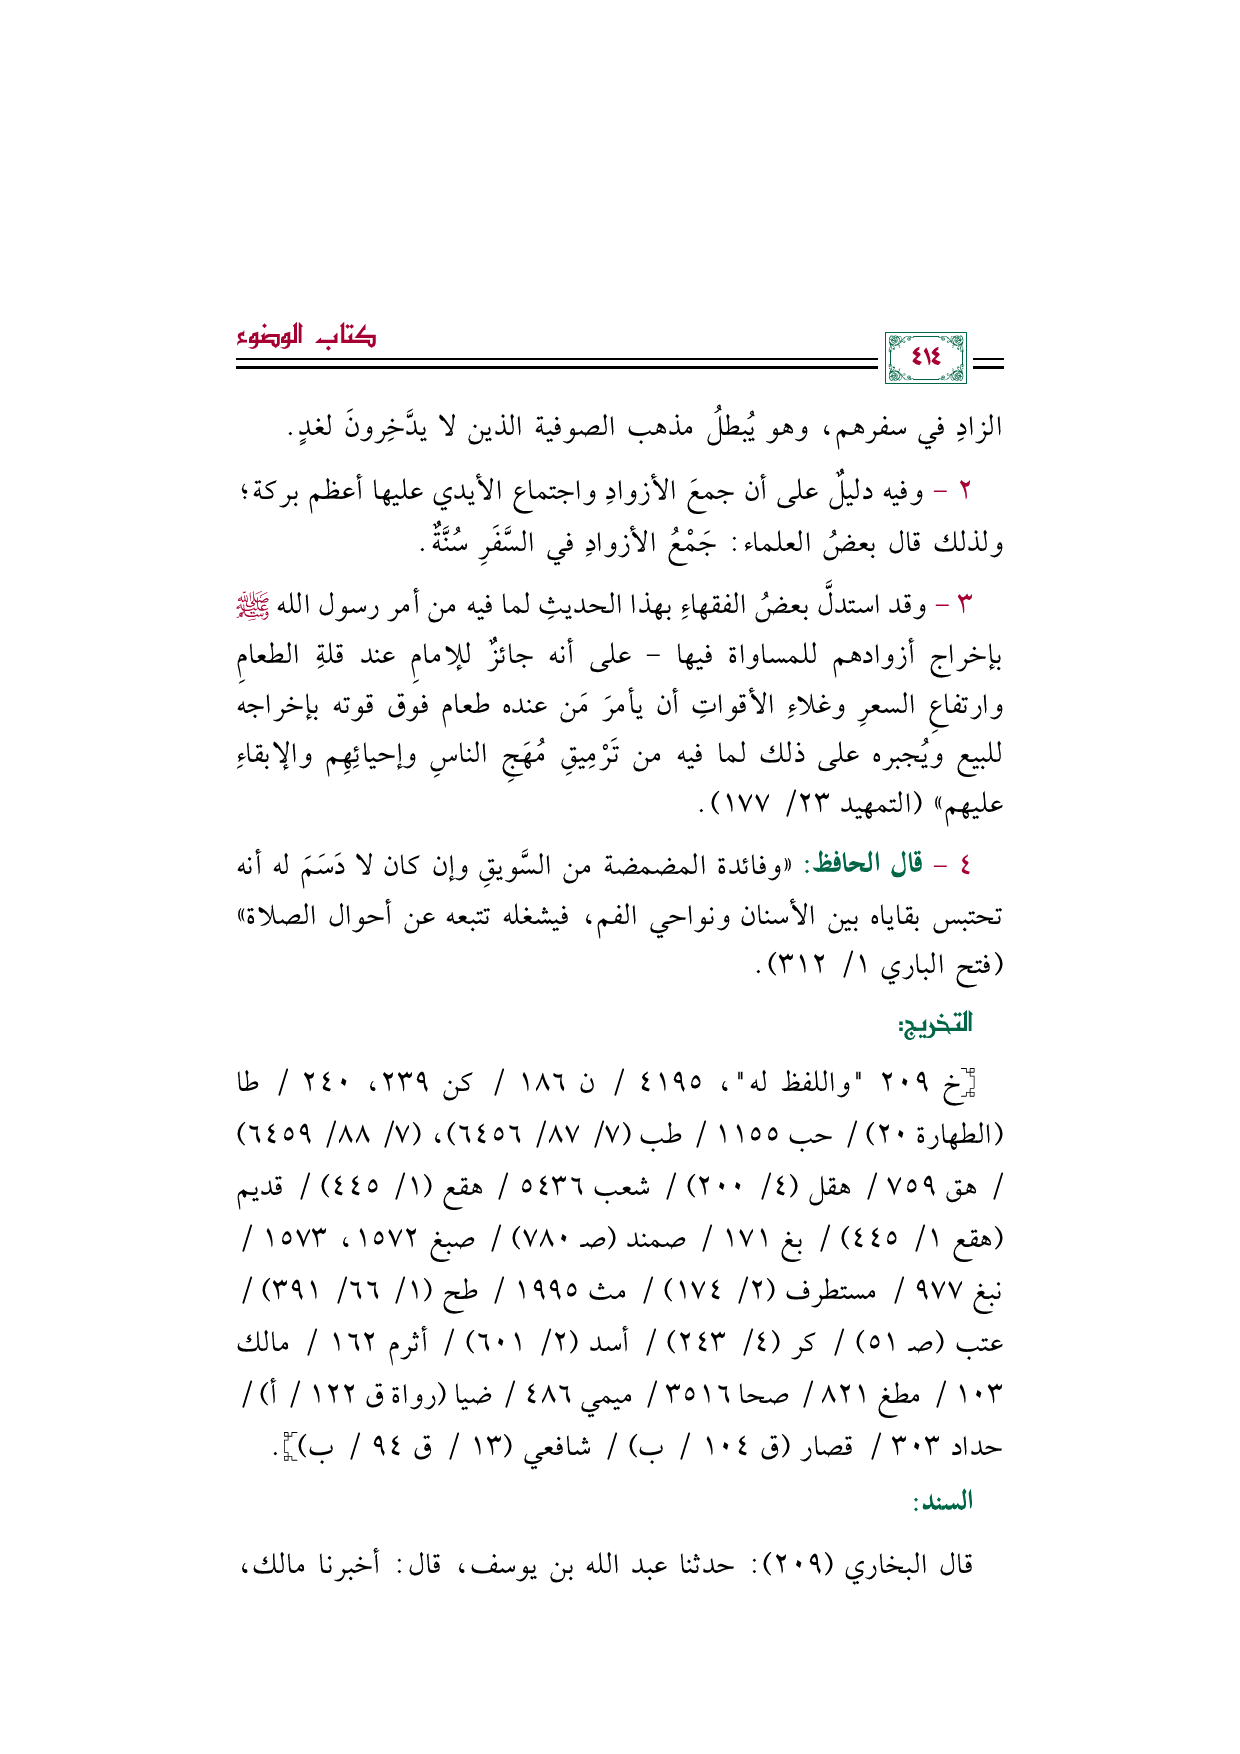 كتاب الوضوء
٤١٤
الزادِ في سفرهم، وهو يُبطلُ مذهب الصوفية الذين لا يدَّخِرونَ لغدٍ.
٢ - وفيه دليلٌ على أن جمعَ الأزوادِ واجتماع الأيدي عليها أعظم بركة؛
ولذلك قال بعضُ العلماء: جَمْعُ الأزوادِ في السَّفَرِ سُنَّةٌ.
٣ - وقد استدلَّ بعضُ الفقهاءِ بهذا الحديثِ لما فيه من أمر رسول الله ﷺ
بإخراج أزوادهم للمساواة فيها - على أنه جائزٌ للإمامِ عند قلةِ الطعامِ
وارتفاعِ السعرِ وغلاءِ الأقواتِ أن يأمرَ مَن عنده طعام فوق قوته بإخراجه
للبيع ويُجبره على ذلك لما فيه من تَرْمِيقِ مُهَجِ الناسِ وإحيائِهِم والإبقاءِ
عليهم» (التمهيد ٢٣/ ١٧٧).
٤ - قال الحافظ: «وفائدة المضمضة من السَّويقِ وإن كان لا دَسَمَ له أنه
تحتبس بقاياه بين الأسنان ونواحي الفم، فيشغله تتبعه عن أحوال الصلاة»
(فتح الباري ١/ ٣١٢).
التخريج:
[خ ٢٠٩ "واللفظ له"، ٤١٩٥ / ن ١٨٦ / كن ٢٣٩، ٢٤٠ / طا
(الطهارة ٢٠) / حب ١١٥٥ / طب (٧/ ٨٧/ ٦٤٥٦)، (٧/ ٨٨/ ٦٤٥٩)
/ هق ٧٥٩ / هقل (٤/ ٢٠٠) / شعب ٥٤٣٦ / هقع (١/ ٤٤٥) / قديم
(هقع ١/ ٤٤٥) / بغ ١٧١ / صمند (صـ ٧٨٠) / صبغ ١٥٧٢، ١٥٧٣ /
نبغ ٩٧٧ / مستطرف (٢/ ١٧٤) / مث ١٩٩٥ / طح (١/ ٦٦/ ٣٩١) /
عتب (صـ ٥١) / كر (٤/ ٢٤٣) / أسد (٢/ ٦٠١) / أثرم ١٦٢ / مالك
١٠٣ / مطغ ٨٢١ / صحا ٣٥١٦ / ميمي ٤٨٦ / ضيا (رواة ق ١٢٢ / أ) /
حداد ٣٠٣ / قصار (ق ١٠٤ / ب) / شافعي (١٣ / ق ٩٤ / ب)].
السند:
قال البخاري (٢٠٩): حدثنا عبد الله بن يوسف، قال: أخبرنا مالك،